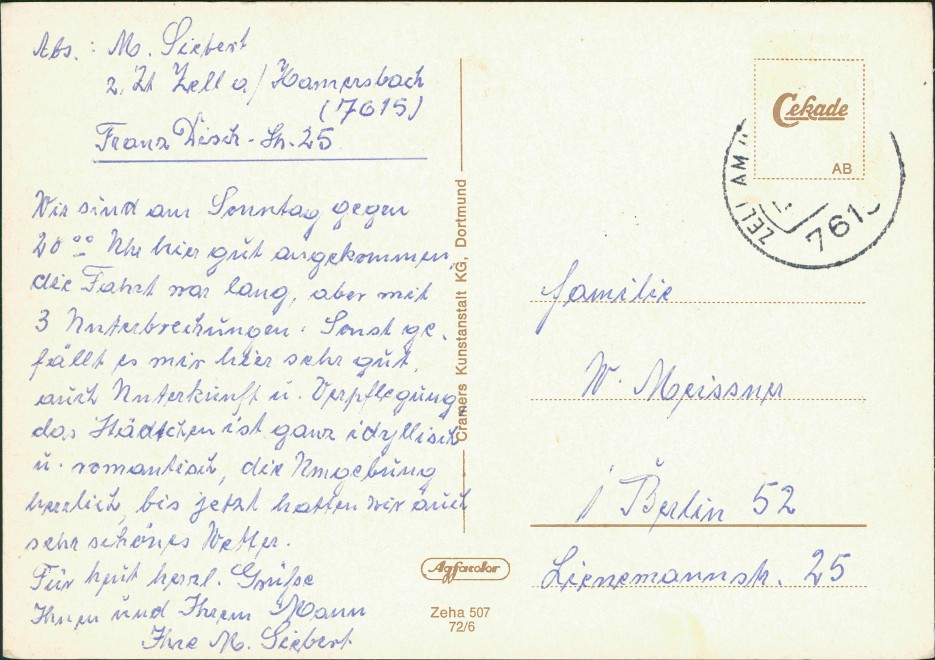 Abs.: M. Siebert
z. Zt Zell a/ Hamersbach
(7615)
Franz Disch-Str. 25
Wir sind am Sonntag gegen
20⁰⁰ Uhr hier gut angekommen,
die Fahrt war lang, aber mit
3 Unterbrechungen. Sonst ge-
fällt es mir hier sehr gut,
auch Unterkunft u. Verpflegung,
das Städtchen ist ganz idyllisch
u. romantisch, die Umgebung
herrlich, bis jetzt hatten wir auch
sehr schönes Wetter.
Für heut herzl. Grüße
Ihnen und Ihrem Mann
Ihre M. Siebert
Cramers Kunstanstalt KG, Dortmund
Cekade
AB
ZELL AM
761
Familie
W. Meissner
1 Berlin 52
Lienemannstr. 25
Agfacolor
Zeha 507
72/6